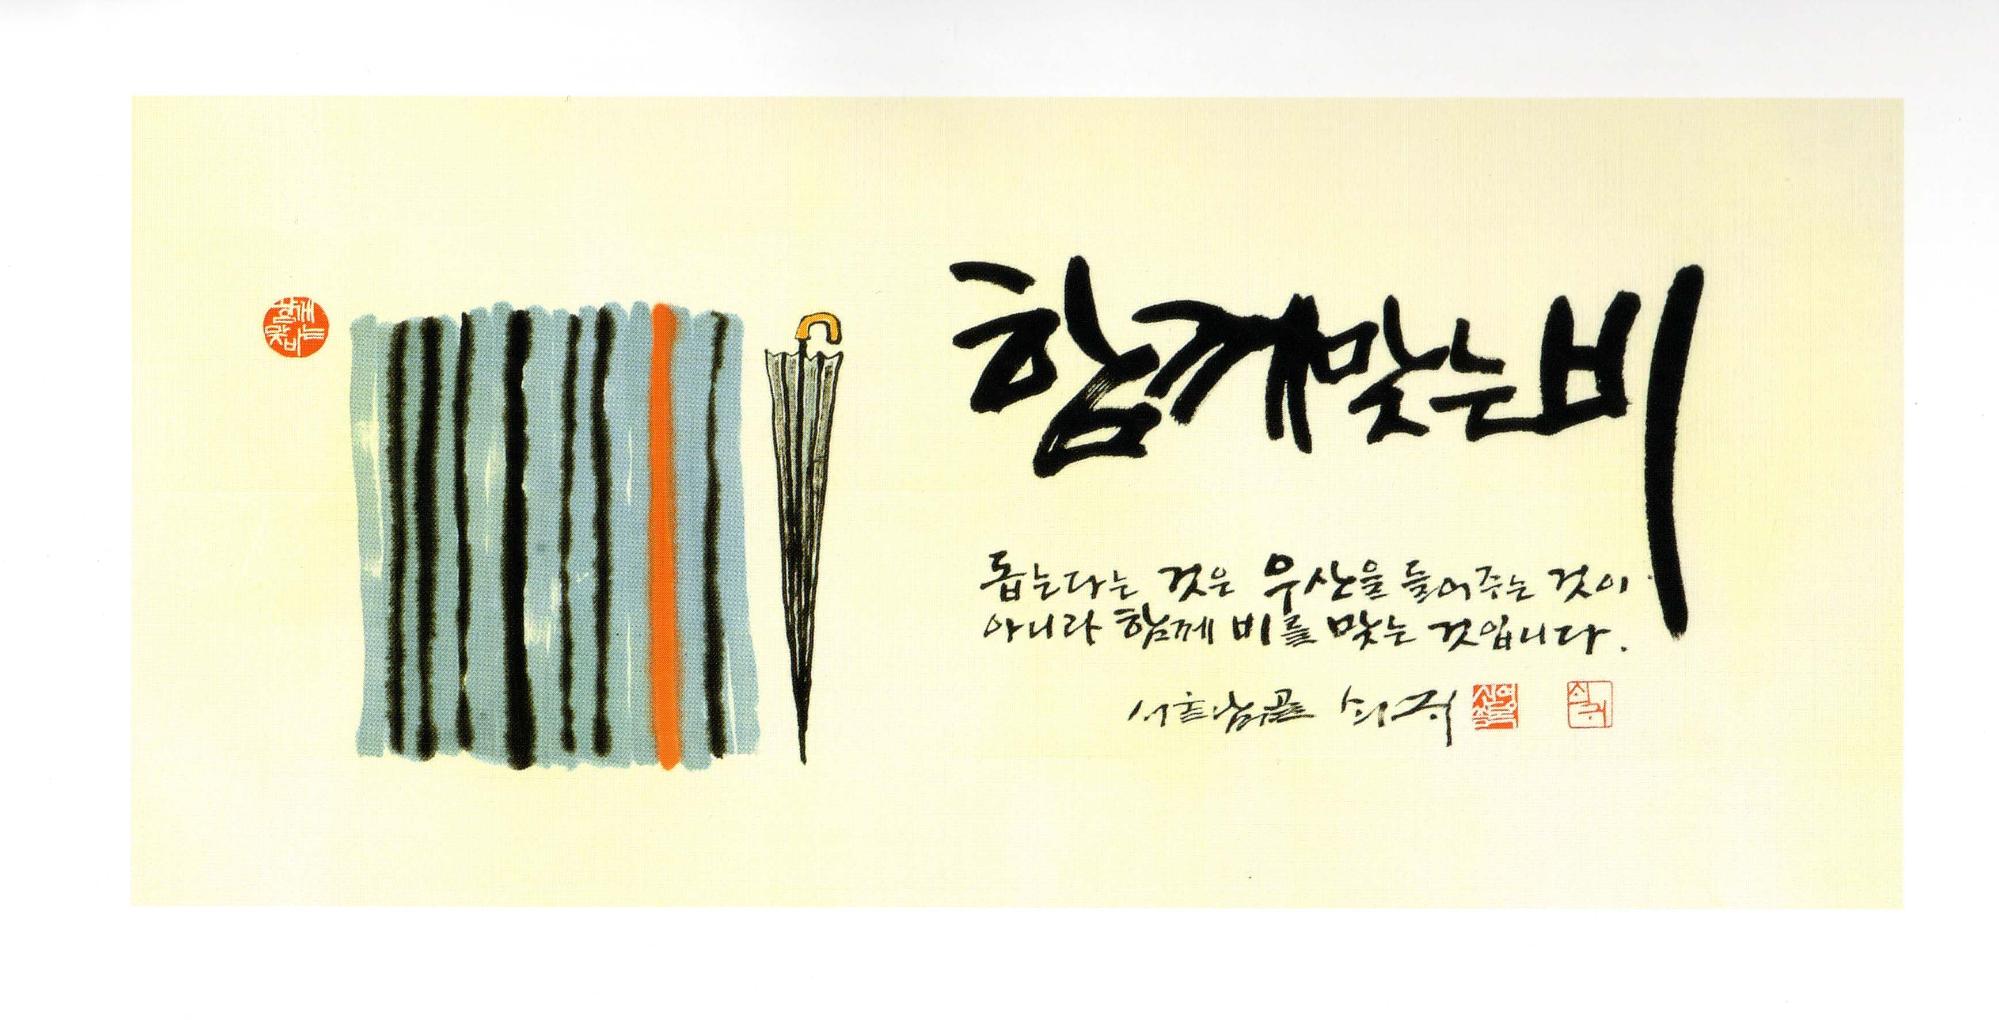 함께맞는비
돕는다는 것은 우산을 들어주는 것이
아니라 함께 비를 맞는 것입니다.
쇠귀
함께 맞는 비
신영복
쇠귀